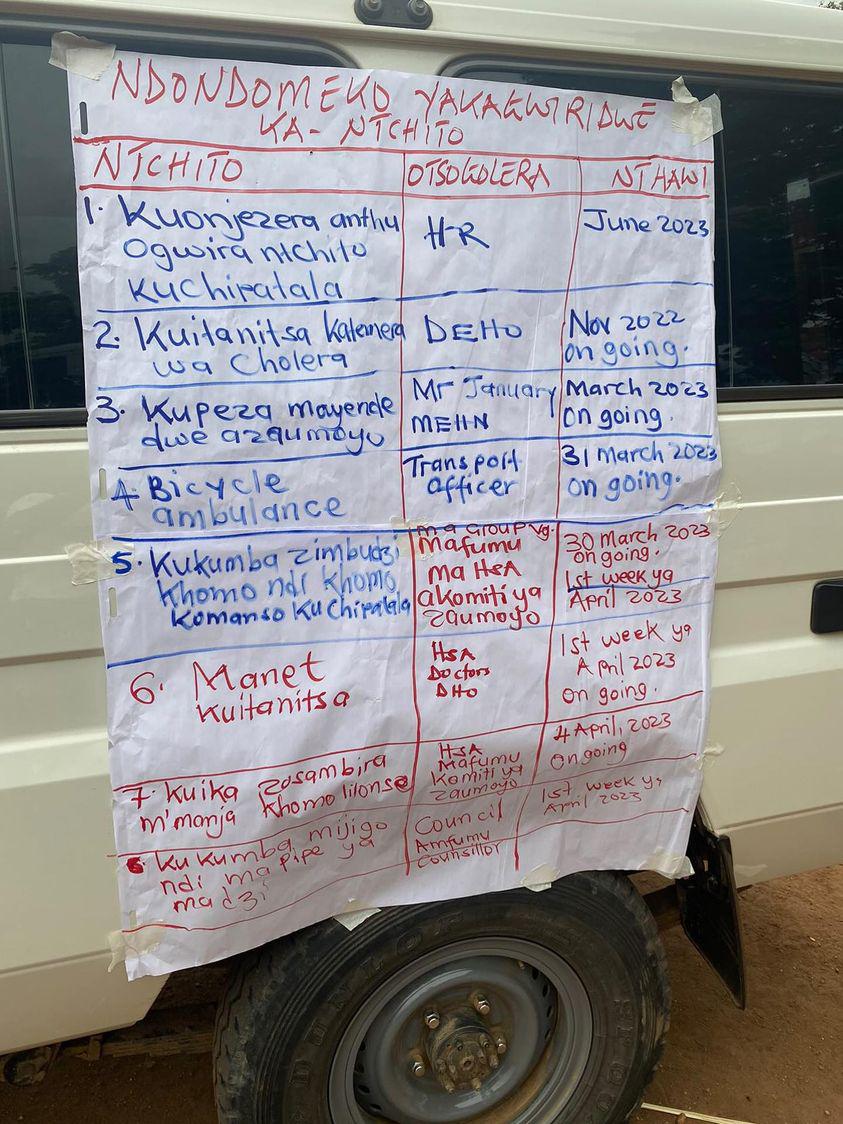 NDONDOMEKO YAKAGWIRIDWE
KA- NTCHITO
NTCHITO OTSOGOLERA NTHAWI
1. Kuonjezera anthu
ogwira ntchito
kuchipatala
HR
June 2023
2. Kuitanitsa katemera
wa cholera
DEHO
Nov 2022
on going.
3. Kupeza mayende
dwe azaumoyo
Mr January
MEHN
March 2023
on going.
4. Bicycle
ambulance
Transport
officer
31 March 2023
on going.
5. Kukumba zimbudzi
khomo ndi khomo
komanso kuchipatala
ma Group vg.
Mafumu
ma HSA
akomiti ya
zaumoyo
30 March 2023
on going.
1st week ya
April 2023
6. Manet
kuitanitsa
HSA
Doctors
DHO
1st week ya
April 2023
on going.
7. Kuika zosambira
m'manja khomo lilonse
HSA
Mafumu
Komiti ya
zaumoyo
4 April, 2023
ongoing
8. Kukumba mijigo
ndi ma pipe ya
madzi
Council
Amfumu
Counsillor
1st week ya
April 2023
DUNLOP